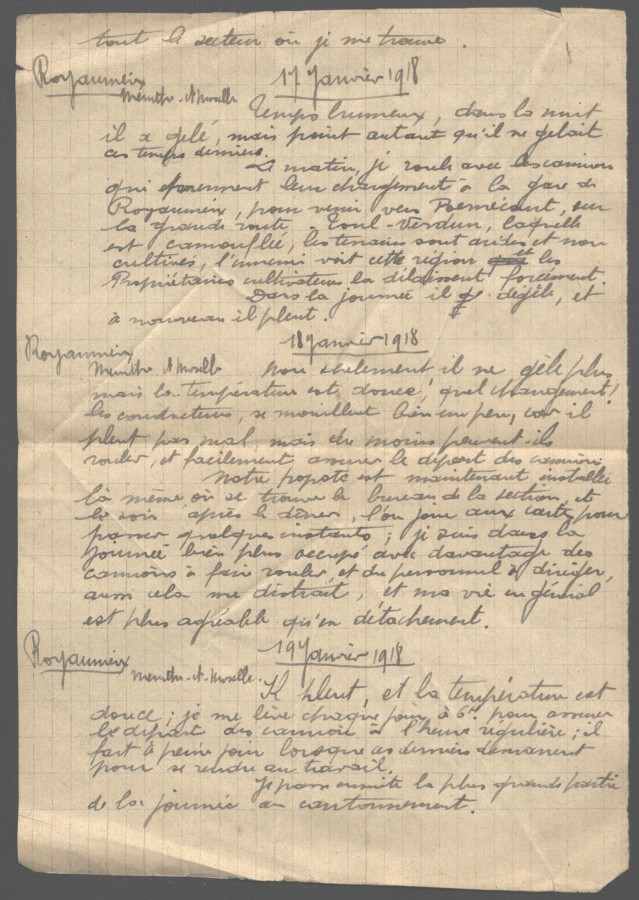 tout le secteur où je me trouve.
Royaumeix 17 Janvier 1918
Meurthe-et-Moselle
Temps brumeux, dans la nuit
il a gelé, mais point autant qu'il ne gelait
ces temps derniers.
Le matin, je roule avec les camions
qui prennent leur chargement à la gare de
Royaumeix, pour venir vers, sur
la grande route, Toul-Verdun, laquelle
est camouflée, les terrains sont arides et non
cultivés, l'ennemi voit cette région et les
Propriétaires cultivateurs la délaissent forcément.
Dans la journée il dégèle, et
à nouveau il pleut.
Royaumeix 18 Janvier 1918
Meurthe et Moselle non seulement il ne gèle plus
mais la température est douce, quel changement!
les conducteurs, se mouillent bien un peu, car il
pleut pas mal, mais du moins peuvent-ils
rouler, et facilement assurer le départ des camions
Notre popote est maintenant installée
là même où se trouve le bureau de la section, et
le soir après le dîner, l'on joue aux cartes, pour
passer quelques instants; je suis dans la
journée bien plus occupé avec davantage des
camions à faire rouler, et du personnel à diriger,
aussi cela me distrait, et ma vie en général
est plus agréable qu'en détachement.
Royaumeix 19 Janvier 1918
Meurthe-et-Moselle.
Il pleut, et la température est
douce; je me lève chaque jour à 6h pour assurer
le départ des camions à l'heure régulière; il
fait à peine jour lorsque ces derniers démarrent
pour se rendre au travail.
Je passe ensuite la plus grande partie
de la journée au cantonnement.